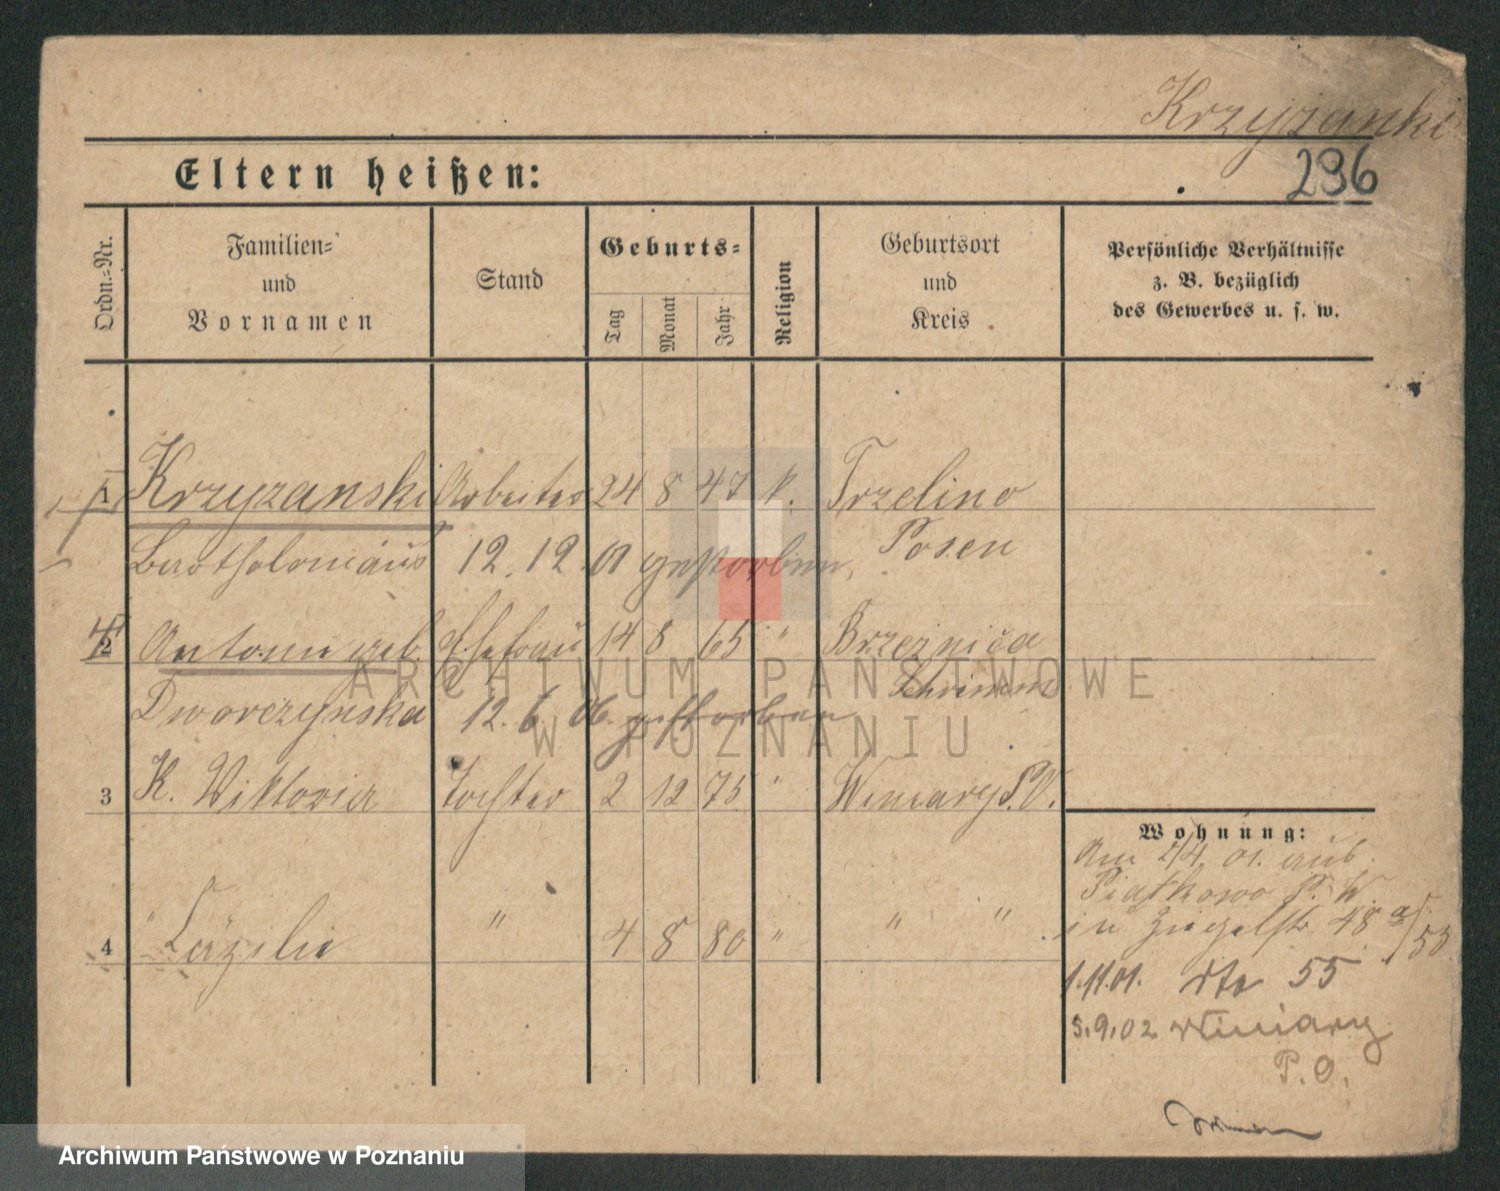 Krzyzanski
296
Eltern heißen:
Ordn.-Nr.
Familien-
und
Vornamen
Stand
Geburts-
Tag
Monat
Jahr
Religion
Geburtsort
und
Kreis
Persönliche Verhältnisse
z. B. bezüglich
des Gewerbes u. s. w.
1 Krzyzanski Arbeiter 24 8 47 k. Trzelino
Bartholomäus 12. 12. 01 gestorben, Posen
2 Antonie geb. Ehefrau 14 8 65 " Brzeznica
Dworczynska 12. 6. 06. gestorben Schrimm
3 K. Viktoria Tochter 2 12 75 " Winiary P. O.
4 " Cäzilie " 4 8 80 " " "
Wohnung:
Am 2/4. 01. aus
Piatkowo P. W.
in Ziegelstr. 48 a/53
1.11.01. dto 55
3.9.02 Winiary
P. O.
ARCHIWUM PAŃSTWOWE
W POZNANIU
Archiwum Państwowe w Poznaniu